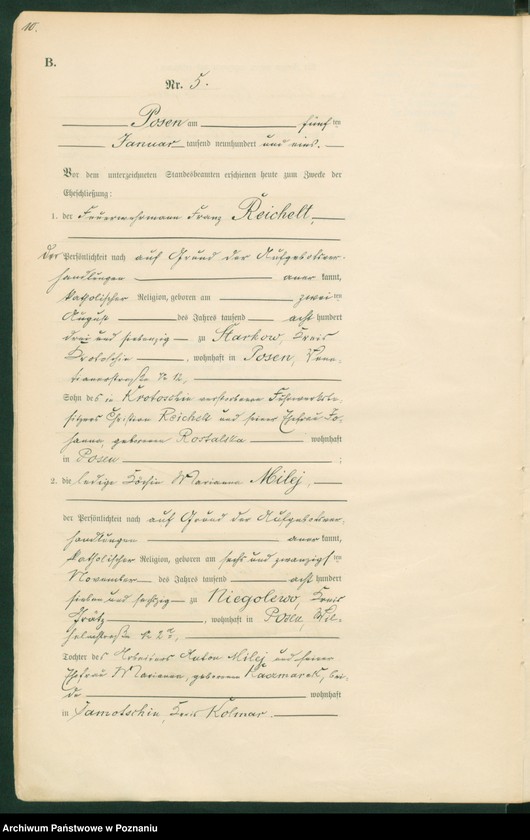 10.
B.
Nr. 5.
Posen am fünf ten
Januar tausend neunhundert und eins.
Vor dem unterzeichneten Standesbeamten erschienen heute zum Zwecke der
Eheschließung:
1. der Feuerwehrmann Franz Reichelt,
der Persönlichkeit nach auf Grund der Aufgebotsver-
handlungen aner kannt,
katholischer Religion, geboren am zwei ten
August des Jahres tausend acht hundert
drei und siebenzig zu Starkow, Kreis
Krotoschin, wohnhaft in Posen,
No 12,
Sohn des in Krotoschin verstorbenen
Christian Reichelt und seiner Ehefrau Jo-
hanna, geborenen Rostalska wohnhaft
in Posen ;
2. die ledige Köchin Marianna Milej,
der Persönlichkeit nach auf Grund der Aufgebotsver-
handlungen aner kannt,
katholischer Religion, geboren am sechs und zwanzigs ten
November des Jahres tausend acht hundert
sieben und sechzig zu Niegolewo, Kreis
Grätz, wohnhaft in Posen, Wil-
helmstraße No
Tochter des Arbeiters Anton Milej und seiner
Ehefrau Marianna, geborenen Kaczmarek, bei-
de wohnhaft
in Samotschin, Kreis Kolmar.
Archiwum Państwowe w Poznaniu